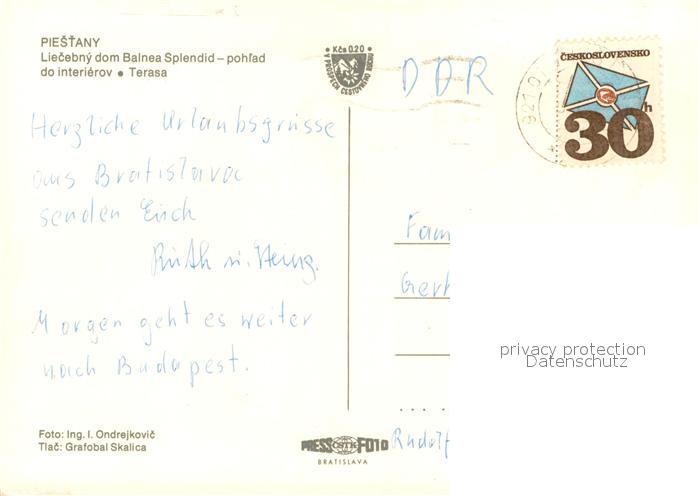 PIEŠŤANY
Liečebný dom Balnea Splendid – pohľad
do interiérov ● Terasa
Kčs 0.20
V PROSPECH CESTOVNÉHO RUCHU
DDR
9210
ČESKOSLOVENSKO
30h
Herzliche Urlaubsgrüsse
aus Bratislava
senden Euch
Ruth u. Heinz.
Morgen geht es weiter
nach Budapest.
Fam
Gerh
privacy protection
Datenschutz
Rudolf
Foto: Ing. I. Ondrejkovič
Tlač: Grafobal Skalica
PRESS ČSTK FOTO
BRATISLAVA